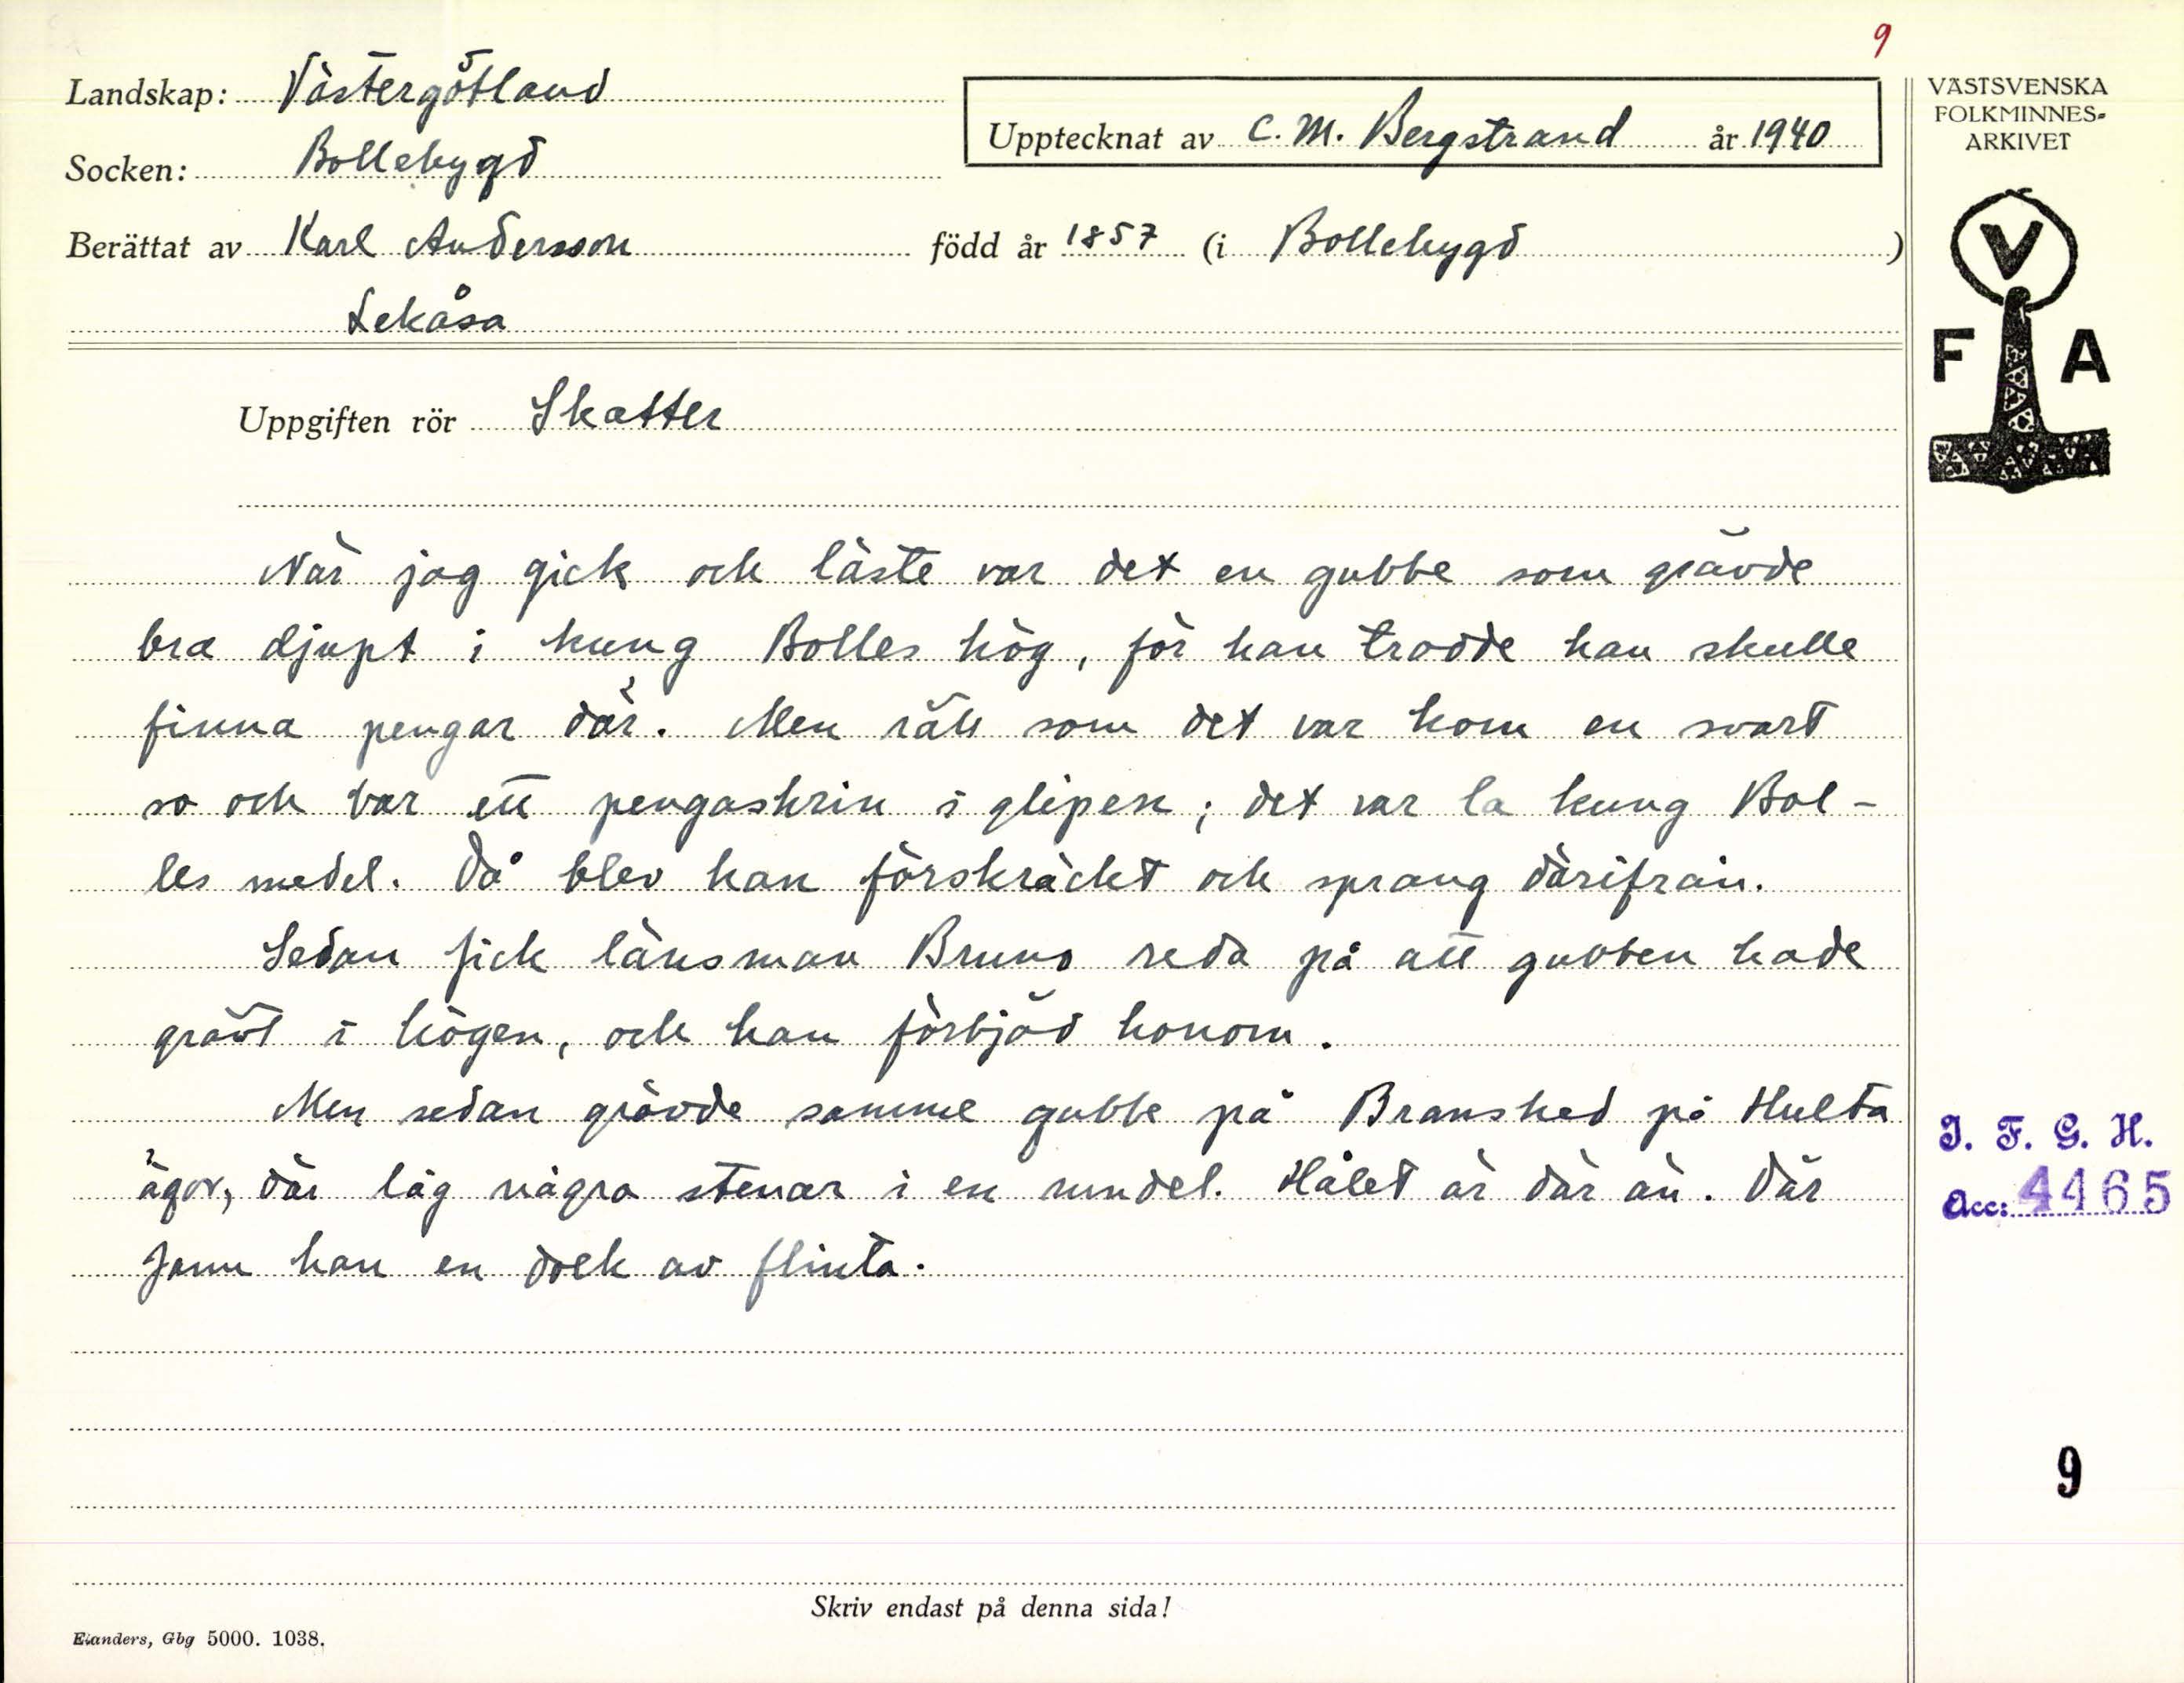 9
Landskap: Västergötland
Upptecknat av C. M. Bergstrand år 1940
VÄSTSVENSKA
FOLKMINNES-
ARKIVET
Socken: Bollebygd
Berättat av Karl Andersson född år 1857 (i Bollebygd )
Lekåsa
V
F A
Uppgiften rör Skatter
När jag gick och läste var det en gubbe som grävde
bra djupt i kung Bolles hög, för han trodde han skulle
finna pengar där. Men rätt som det var kom en svart
so och bar ett pengaskrin i glipen; det var la kung Bol-
les medel. Då blev han förskräckt och sprang därifrån.
Sedan fick länsman Bruno reda på att gubben hade
grävt i högen, och han förbjöd honom.
Men sedan grävde samme gubbe på Branshed på Hulta
ägor, där låg några stenar i en rundel. Hålet är där än. Där
fann han en dolk av flinta.
I. F. G. H.
Acc: 4465
9
Skriv endast på denna sida!
Elanders, Gbg 5000. 1038.